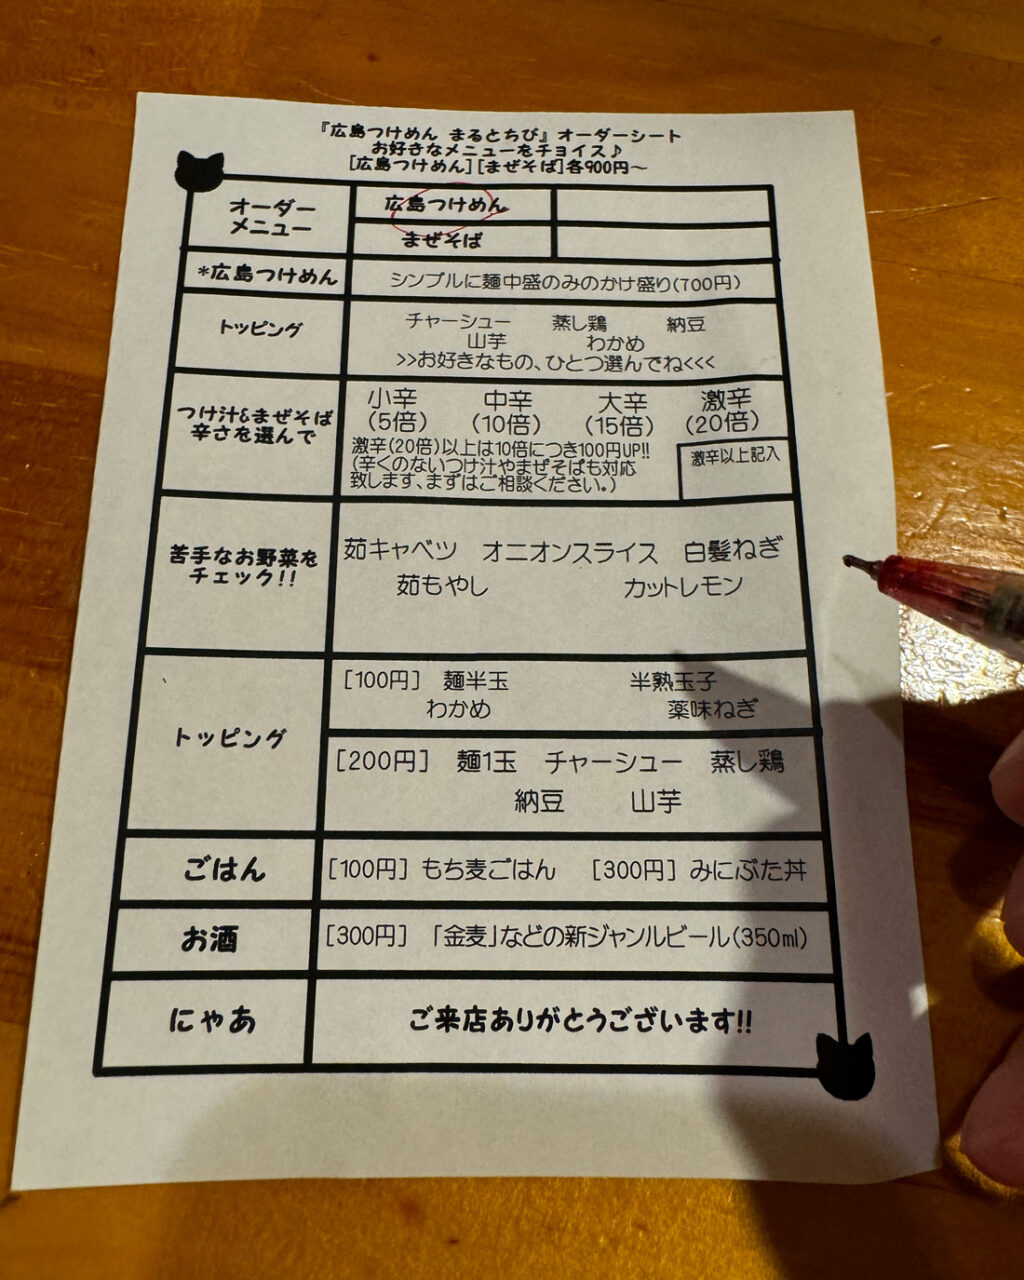 『広島つけめん まるとちび』オーダーシート
お好きなメニューをチョイス♪
[広島つけめん][まぜそば]各900円〜
オーダー
メニュー
広島つけめん
まぜそば
*広島つけめん
シンプルに麺中盛のみのかけ盛り(700円)
トッピング
チャーシュー 蒸し鶏 納豆
山芋 わかめ
>>お好きなもの、ひとつ選んでね<<<
つけ汁&まぜそば
辛さを選んで
小辛 中辛 大辛 激辛
(5倍) (10倍) (15倍) (20倍)
激辛(20倍)以上は10倍につき100円UP!!
(辛くのないつけ汁やまぜそばも対応
致します、まずはご相談ください。)
激辛以上記入
苦手なお野菜を
チェック!!
茹キャベツ オニオンスライス 白髪ねぎ
茹もやし カットレモン
トッピング
[100円] 麺半玉 半熟玉子
わかめ 薬味ねぎ
[200円] 麺1玉 チャーシュー 蒸し鶏
納豆 山芋
ごはん
[100円] もち麦ごはん [300円] みにぶた丼
お酒
[300円] 「金麦」などの新ジャンルビール(350ml)
にゃあ
ご来店ありがとうございます!!